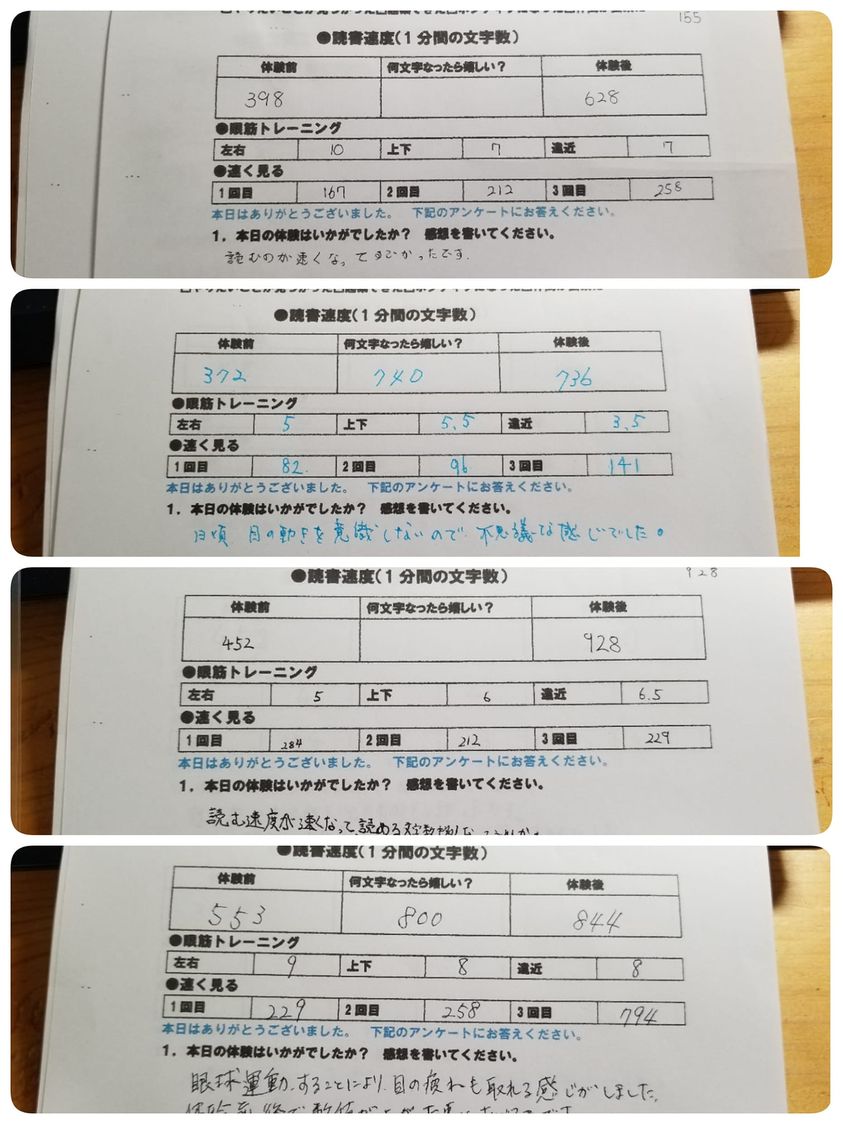 155
●読書速度(1分間の文字数)
体験前 何文字なったら嬉しい? 体験後
398 628
●眼筋トレーニング
左右 10 上下 7 遠近 7
●速く見る
1回目 167 2回目 212 3回目 258
本日はありがとうございました。 下記のアンケートにお答えください。
1.本日の体験はいかがでしたか? 感想を書いてください。
読むのが速くなってすごかったです.
●読書速度(1分間の文字数)
体験前 何文字なったら嬉しい? 体験後
372 740 736
●眼筋トレーニング
左右 5 上下 5.5 遠近 3.5
●速く見る
1回目 82 2回目 96 3回目 141
本日はありがとうございました。 下記のアンケートにお答えください。
1.本日の体験はいかがでしたか? 感想を書いてください。
日頃 目の動きを意識しないので、不思議な感じでした。
●読書速度(1分間の文字数)
928
体験前 何文字なったら嬉しい? 体験後
452 928
●眼筋トレーニング
左右 5 上下 6 遠近 6.5
●速く見る
1回目 284 2回目 212 3回目 229
本日はありがとうございました。 下記のアンケートにお答えください。
1.本日の体験はいかがでしたか? 感想を書いてください。
読む速度が速くなって、読める文字数
●読書速度(1分間の文字数)
体験前 何文字なったら嬉しい? 体験後
553 800 844
●眼筋トレーニング
左右 9 上下 8 遠近 8
●速く見る
1回目 229 2回目 258 3回目 794
本日はありがとうございました。 下記のアンケートにお答えください。
1.本日の体験はいかがでしたか? 感想を書いてください。
眼球運動することにより、目の疲れも取れる感じがしました。